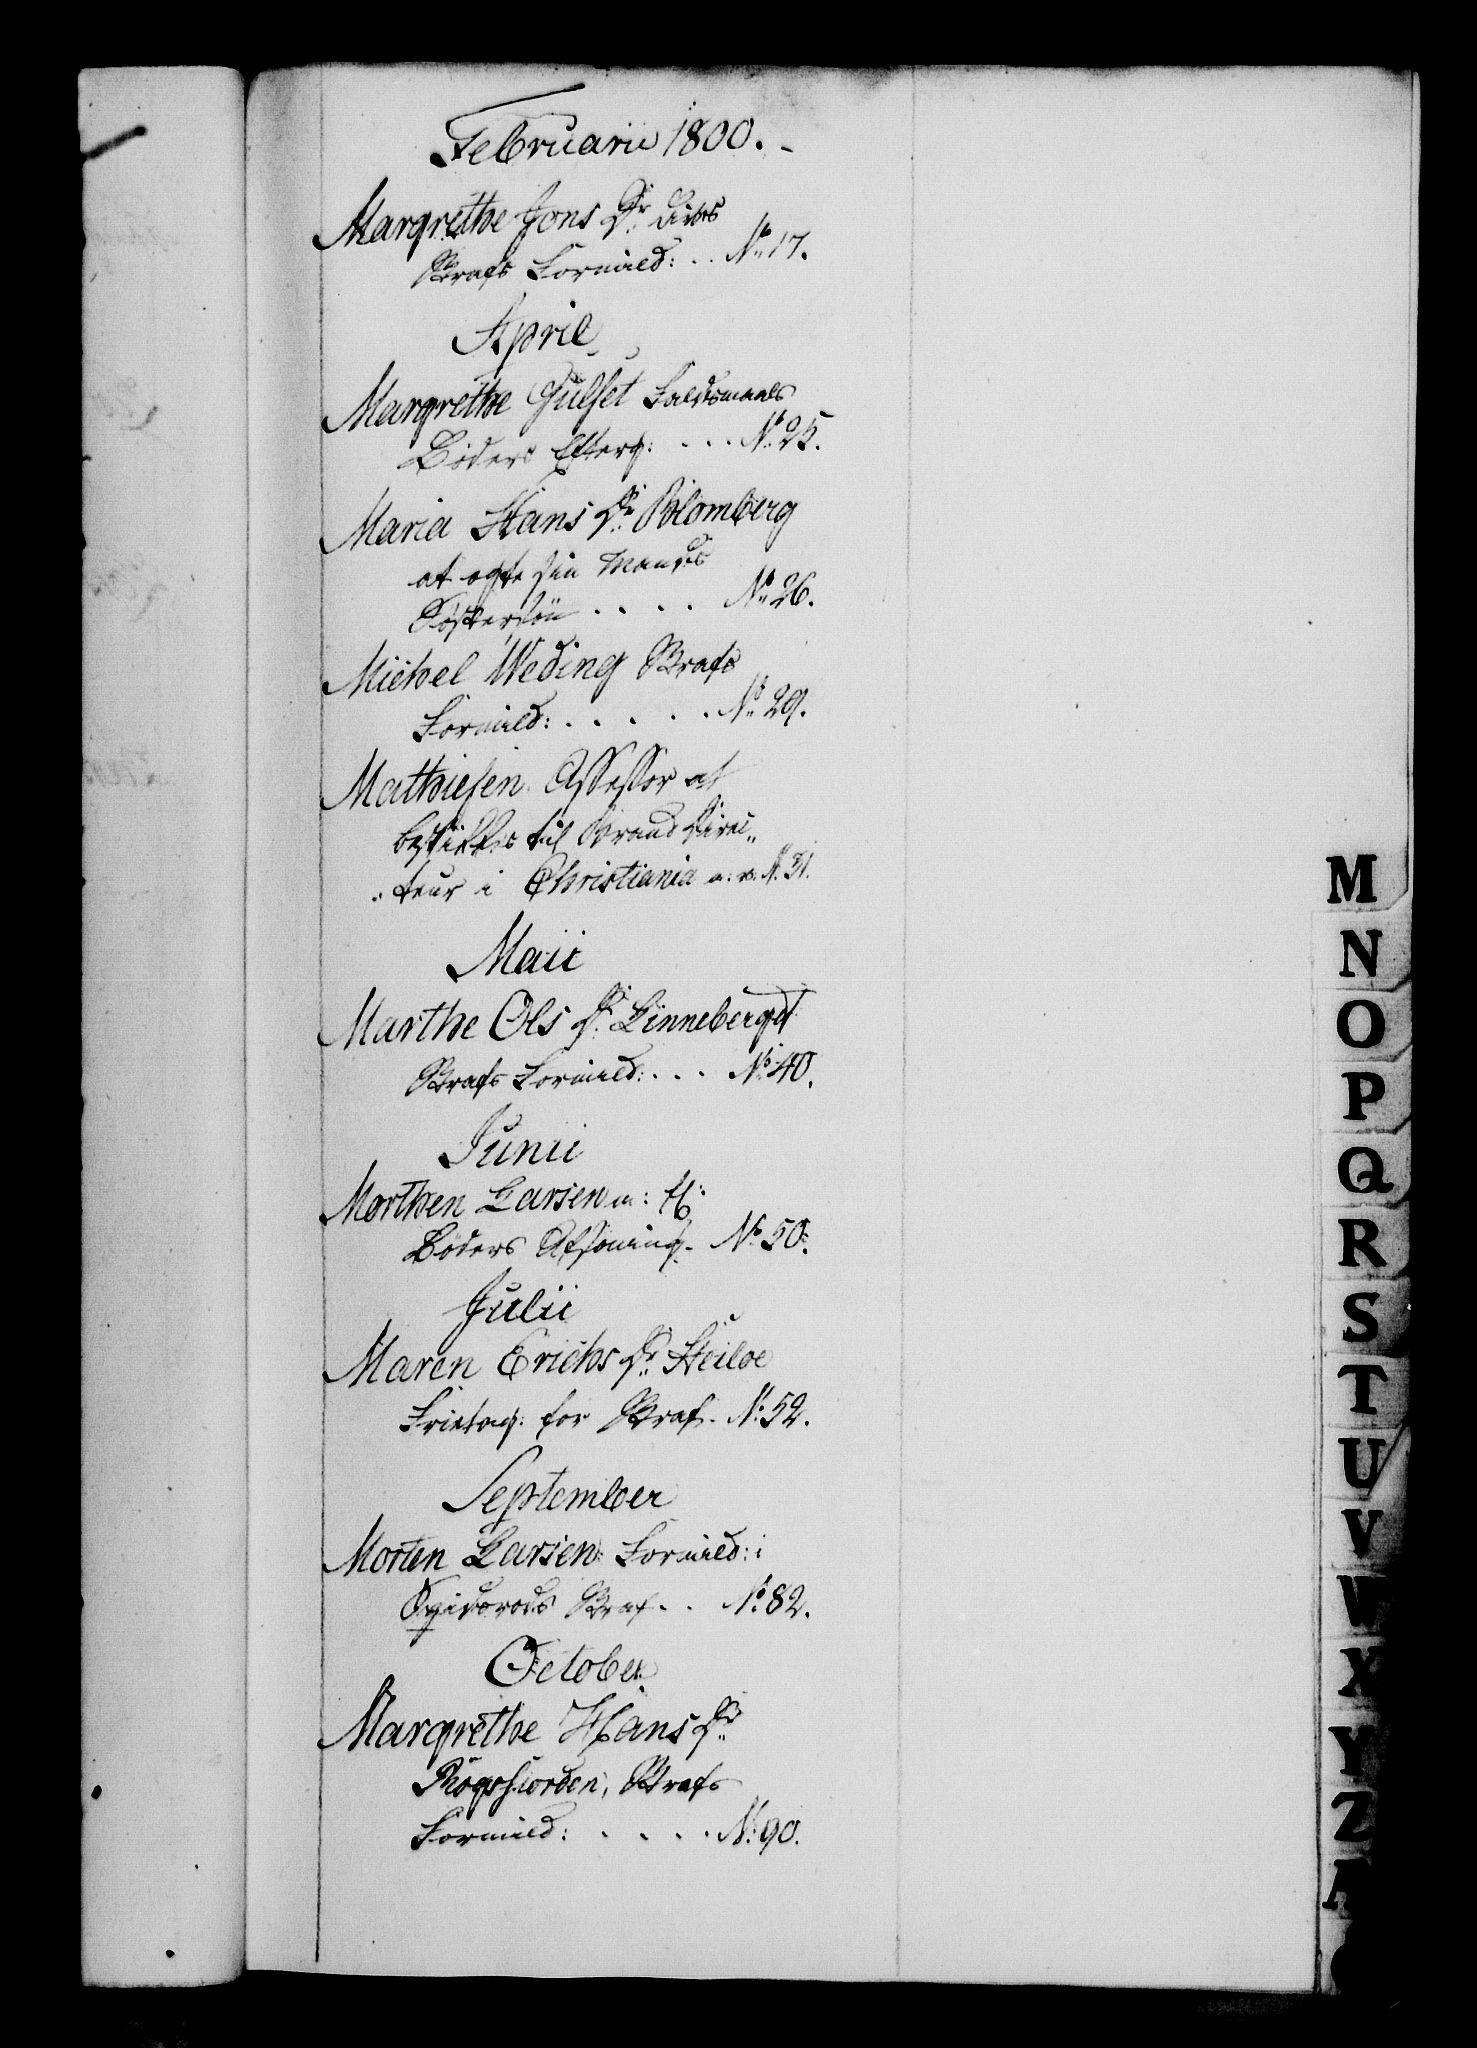 Februarii 1800.
Margrethe Jons Dr: Livs
Strafs Formild: . . No 17.
April
Margrethe Gulset Leiermaals
Böders Efterg: . . . No 25.
Maria Hans Dr: Blomberg
at ægte sin Mands
Södskensön . . . . No 26.
Michel Weding Strafs
Formild: . . . . . No 29.
Mathiesen Assessor at
beskikkes til Brand Direc„
„teur i Christiania a: v: N. 31.
Maii
Marthe Ols Dr: Linneberget
Strafs Formild: . . . No 40.
Junii
Morthen Larsen m: fl:
Böders Afsoning. No 50.
Julii
Maren Erichs Dr: Heiloe
Fritag: for Straf. No 52.
September
Morten Larsen Formild: i
Straf . . No 82.
October
Margrethe Hans Dr:
Rogsfiorden, Strafs
Formild: . . . . No 90.
M
N
O
P
Q
R
S
T
U
V
W
X
Y
Z